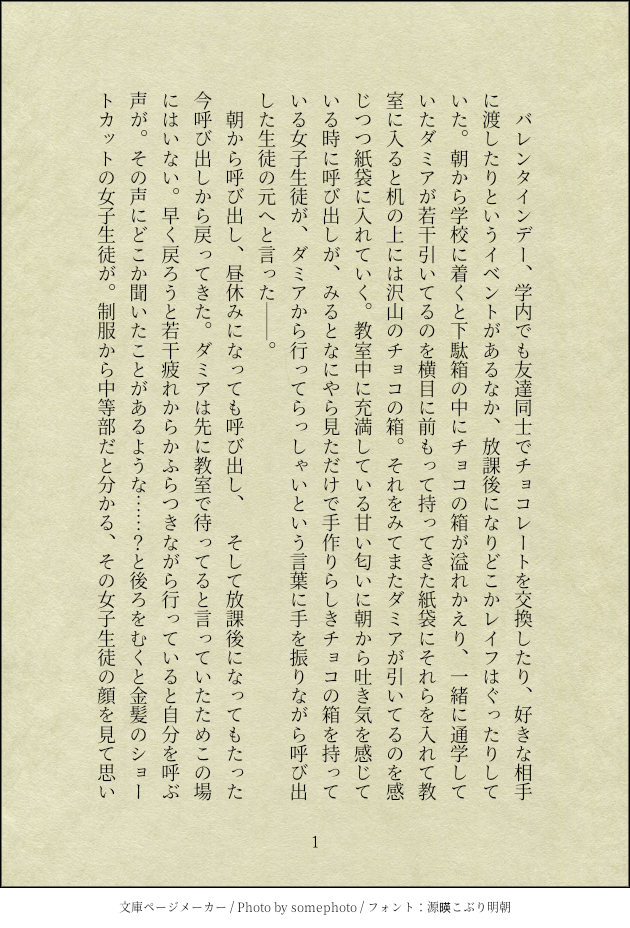 バレンタインデー、学内でも友達同士でチョコレートを交換したり、好きな相手
に渡したりというイベントがあるなか、放課後になりどこかレイフはぐったりして
いた。朝から学校に着くと下駄箱の中にチョコの箱が溢れかえり、一緒に通学して
いたダミアが若干引いてるのを横目に前もって持ってきた紙袋にそれらを入れて教
室に入ると机の上には沢山のチョコの箱。それをみてまたダミアが引いてるのを感
じつつ紙袋に入れていく。教室中に充満している甘い匂いに朝から吐き気を感じて
いる時に呼び出しが、みるとなにやら見ただけで手作りらしきチョコの箱を持って
いる女子生徒が、ダミアから行ってらっしゃいという言葉に手を振りながら呼び出
した生徒の元へと言った――。
　朝から呼び出し、昼休みになっても呼び出し、　そして放課後になってもたった
今呼び出しから戻ってきた。ダミアは先に教室で待ってると言っていたためこの場
にはいない。早く戻ろうと若干疲れからかふらつきながら行っていると自分を呼ぶ
声が。その声にどこか聞いたことがあるような……？と後ろをむくと金髪のショー
トカットの女子生徒が。制服から中等部だと分かる、その女子生徒の顔を見て思い
1
文庫ページメーカー / Photo by somephoto / フォント：源暎こぶり明朝